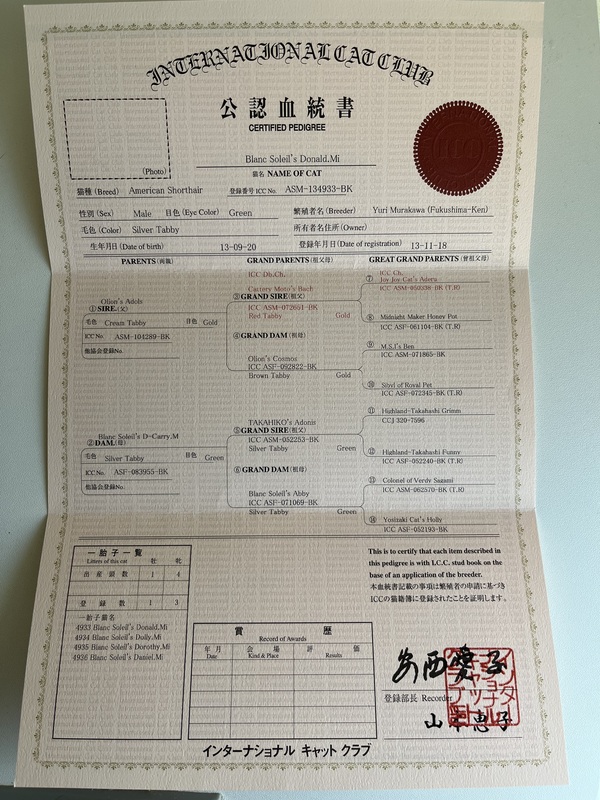 INTERNATIONAL CAT CLUB
公認血統書
CERTIFIED PEDIGREE
(Photo)
Blanc Soleil's Donald.Mi
猫名 NAME OF CAT
猫種 (Breed) American Shorthair 登録番号 ICC No. ASM-134933-BK
性別 (Sex) Male 目色 (Eye Color) Green 繁殖者名 (Breeder) Yuri Murakawa (Fukushima-Ken)
毛色 (Color) Silver Tabby 所有者名住所 (Owner)
生年月日 (Date of birth) 13-09-20 登録年月日 (Date of registration) 13-11-18
PARENTS (両親) GRAND PARENTS (祖父母) GREAT GRAND PARENTS (曾祖父母)
Olion's Adols
①SIRE (父)
毛色 Cream Tabby 目色 Gold
ICC No. ASM-104289-BK
他協会登録No.
Blanc Soleil's D-Carry.M
②DAM (母)
毛色 Silver Tabby 目色 Green
ICC No. ASF-083955-BK
他協会登録No.
ICC Db.Ch.
Cattery Moto's Bach
③GRAND SIRE (祖父)
ICC ASM-072651-BK
Red Tabby Gold
④GRAND DAM (祖母)
Olion's Cosmos
ICC ASF-092822-BK
Brown Tabby Gold
TAKAHIKO's Adonis
⑤GRAND SIRE (祖父)
ICC ASM-052253-BK
Silver Tabby Green
⑥GRAND DAM (祖母)
Blanc Soleil's Abby
ICC ASF-071069-BK
Silver Tabby Green
ICC Ch.
⑦ Joy Joy Cat's Asteru
ICC ASM-050338-BK (T.R)
⑧ Midnight Maker Honey Pot
ICC ASF-061104-BK (T.R)
⑨ M.S.I's Ben
ICC ASM-071865-BK
⑩ Sibyl of Royal Pet
ICC ASF-072345-BK (T.R)
⑪ Highland-Takahashi Grimm
CCJ 320-7596
⑫ Highland-Takahashi Funny
ICC ASF-052240-BK (T.R)
⑬ Colonel of Verdy Sazami
ICC ASM-062570-BK (T.R)
⑭ Yosizaki Cat's Holly
ICC ASF-052193-BK
一胎子一覧 牡 牝
Litters of this cat
出産頭数 1 4
登録数 1 3
一胎子猫名
4933 Blanc Soleil's Donald.Mi
4934 Blanc Soleil's Dolly.Mi
4935 Blanc Soleil's Dorothy.Mi
4936 Blanc Soleil's Daniel.Mi
賞歴
Record of Awards
年月 会場 評価
Date Kind & Place Results
This is to certify that each item described in
this pedigree is with I.C.C. stud book on the
base of an application of the breeder.
本血統書記載の事項は繁殖者の申請に基づき
ICCの猫籍簿に登録されたことを証明します。
安西愛子
登録部長 Recorder
インターナショナルキャットクラブ
インターナショナル キャット クラブ